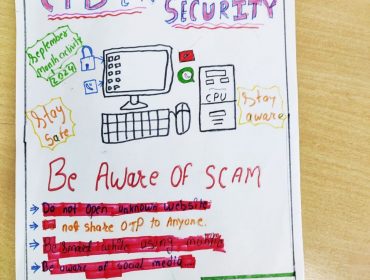 CYBER
SECURITY
September
Month activity
2024
Stay
Safe
CPU
Stay
aware
Be Aware Of SCAM
Do not open unknown website.
not share OTP to Anyone.
Be smart while using mobile
Be aware of social media